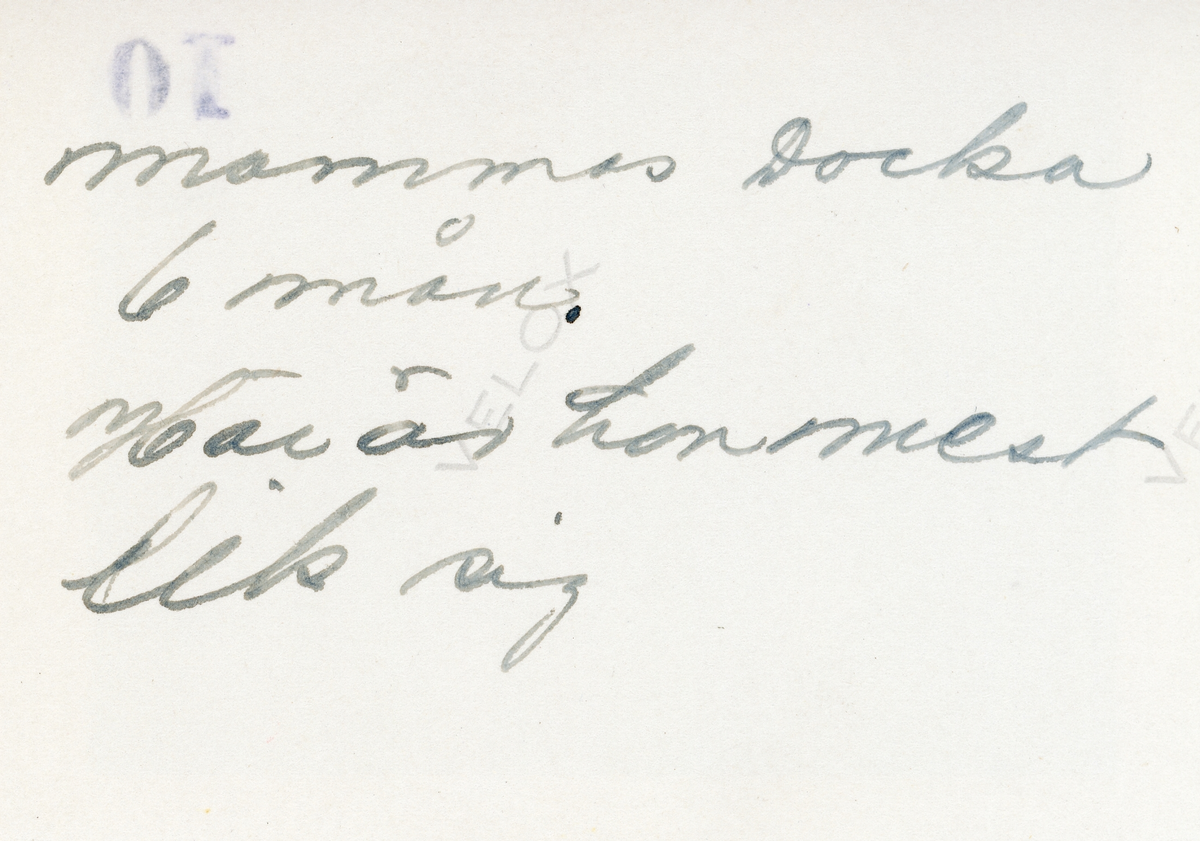 10
mammas Docka
6 mån.
Här är hon mest
lik sig
VELOX
VE